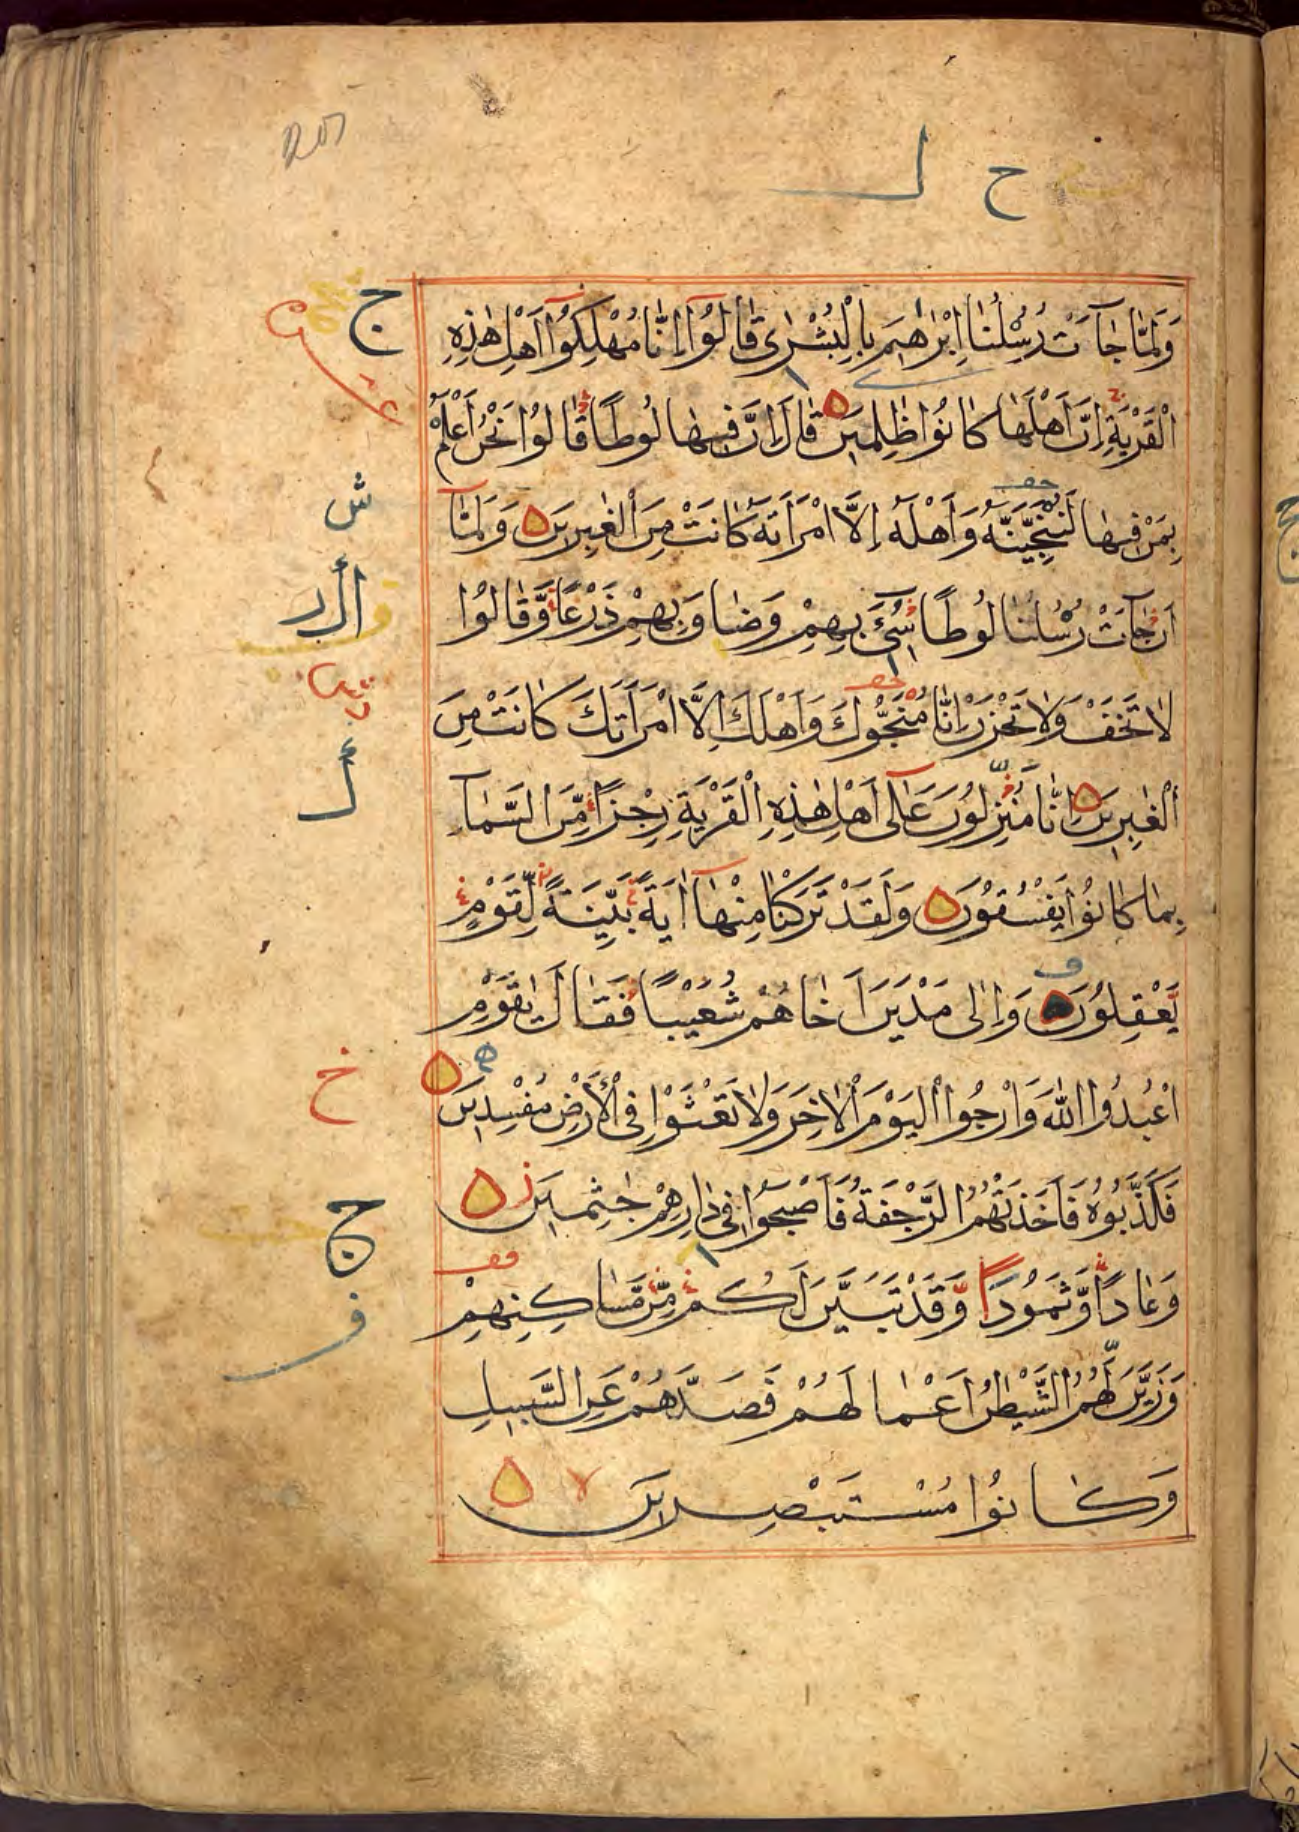 ح ل
وَلَمَّا جَآءَتْ رُسُلُنَا اِبْرٰهِيمَ بِالْبُشْرٰى قَالُوٓا اِنَّا مُهْلِكُوٓا اَهْلِ هٰذِهِ
الْقَرْيَةِ اِنَّ اَهْلَهَا كَانُوا ظٰلِمِينَ ۝ قَالَ اِنَّ فِيهَا لُوطًا قَالُوا نَحْنُ اَعْلَمُ
بِمَنْ فِيهَا لَنُنَجِّيَنَّهُ وَاَهْلَهُ اِلَّا امْرَاَتَهُ كَانَتْ مِنَ الْغٰبِرِينَ ۝ وَلَمَّآ
اَنْ جَآءَتْ رُسُلُنَا لُوطًا سِىٓءَ بِهِمْ وَضَاقَ بِهِمْ ذَرْعًا وَّقَالُوا
لَا تَخَفْ وَلَا تَحْزَنْ اِنَّا مُنَجُّوكَ وَاَهْلَكَ اِلَّا امْرَاَتَكَ كَانَتْ مِنَ
الْغٰبِرِينَ ۝ اِنَّا مُنْزِلُونَ عَلٰٓى اَهْلِ هٰذِهِ الْقَرْيَةِ رِجْزًا مِّنَ السَّمَآءِ
بِمَا كَانُوا يَفْسُقُونَ ۝ وَلَقَدْ تَرَكْنَا مِنْهَآ اٰيَةً بَيِّنَةً لِّقَوْمٍ
يَّعْقِلُونَ ۝ وَاِلٰى مَدْيَنَ اَخَاهُمْ شُعَيْبًا فَقَالَ يٰقَوْمِ
اعْبُدُوا اللّٰهَ وَارْجُوا الْيَوْمَ الْاٰخِرَ وَلَا تَعْثَوْا فِى الْاَرْضِ مُفْسِدِينَ ۝
فَكَذَّبُوهُ فَاَخَذَتْهُمُ الرَّجْفَةُ فَاَصْبَحُوا فِى دَارِهِمْ جٰثِمِينَ ۝
وَعَادًا وَّثَمُودَا وَقَدْ تَبَيَّنَ لَكُمْ مِّنْ مَّسَاكِنِهِمْ
وَزَيَّنَ لَهُمُ الشَّيْطٰنُ اَعْمَالَهُمْ فَصَدَّهُمْ عَنِ السَّبِيلِ
وَكَانُوا مُسْتَبْصِرِينَ ۝
ج
ش
خ
ج
ف